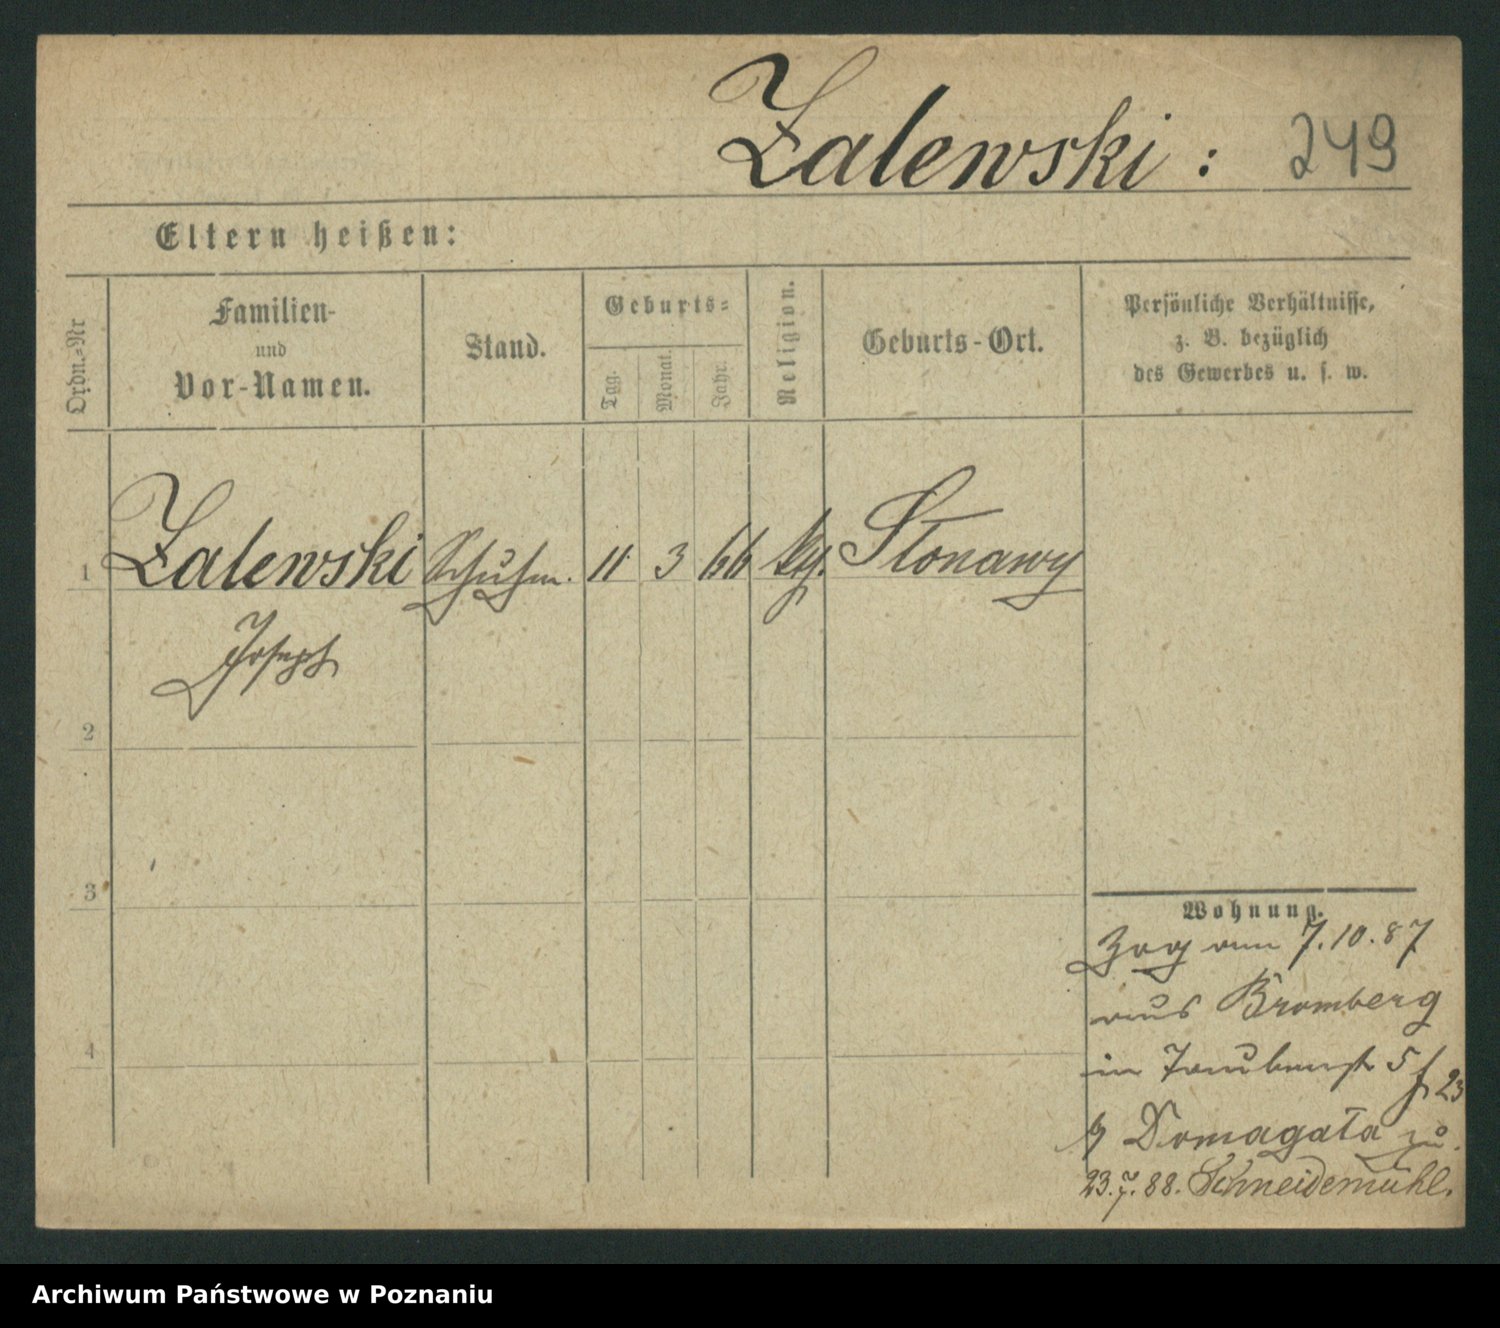 Zalewski : 249
Eltern heißen:
Ordn.=Nr
Familien-
und
Vor-Namen.
Stand.
Geburts=
Tag.
Monat.
Jahr.
Religion.
Geburts-Ort.
Persönliche Verhältnisse,
z. B. bezüglich
des Gewerbes u. s. w.
1 Zalewski Schuhm. 11 3 66 Stonawy
Joseph
2
3
4
Wohnung.
Zog am 7.10.87
aus Bromberg
in Taubenst 5 23
Domagała zu
23.7.88. Schneidemühl.
Archiwum Państwowe w Poznaniu